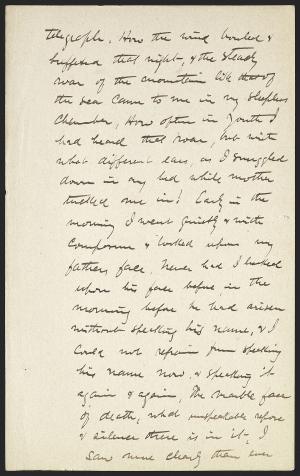 telegraph. How the wind howled &
buffeted that night, & the steady
roar of the mountain like that of
the sea came to me in my sleepless
chamber, How often in youth I
had heard that roar, but with
what different ears, as I snuggled
down in my bed while mother
tucked me in! Early in the
morning I went quietly & with
composure & looked upon my
fathers face. Never had I looked
upon his face before in the
morning before he had arisen
without speaking his name, & I
could not refrain from speaking
his name now, & speaking it
again & again, The marble face
of death, what unspeakable repose
& silence there is in it. I
saw more clearly than ever